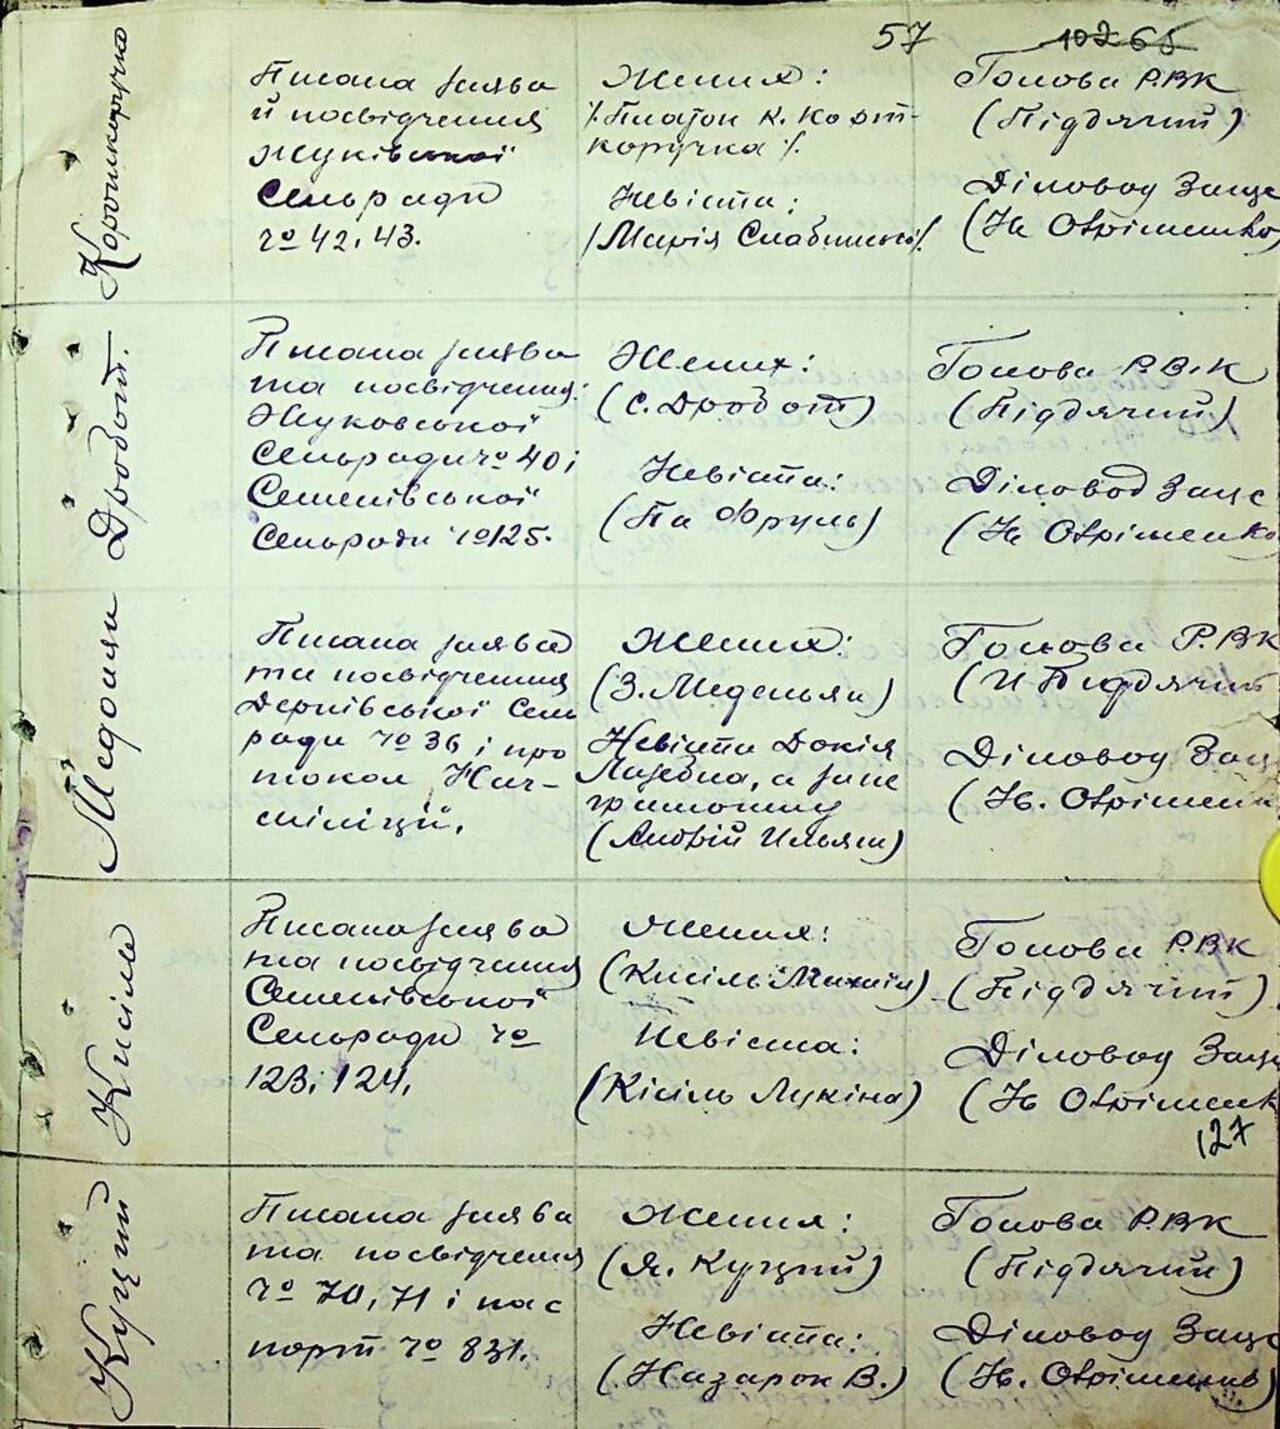 57 10265
Короткоручко
Писана заява
й посвідчення
Жуківської
Сельради
№ 42, 43.
Жених:
/.Платон К. Корот-
коручка /.
Невіста:
/Марія Слабинські/.
Голова Р.ВК
(Підdячий)
Діловод Загс
(Н. Овріменко)
Дробот.
Писана заява
та посвідчення:
Жуковської
Сельради № 40 і
Семенівської
Сельради № 125.
Жених:
(С. Дробот)
Невіста:
(Па Фруль)
Голова Р.В.К
(Підdячий)
Діловод Загс
(Н. Овріменко
Медоняи
Писана заява
та посвідчення
Дернівської Сель
ради № 36 і про
токол Нач-
міліції.
Жених:
(З. Меденьян)
Невіста Докія
Лазебна, а за не
грамотну
(Андрій Ильяш)
Голова Р.ВК
(И Підdячий
Діловод Загс
(Н. Овріменк
Кисіль
Писана заява
та посвідчення
Семенівської
Сельради №
123, 124,
Жених:
(Кисіль Михаіл)
Невіста:
(Кісіль Лукіна)
Голова Р.ВК
(Підdячий)
Діловод Загс
(Н Овріменк
127
Куций
Писана заява
та посвідчення
№ 70, 71 і пас
порт № 831.
Жених:
(Я. Куций)
Невіста:
(Назарок В.)
Голова Р.ВК
(Підdячий)
Діловод Загс
(Н. Овріменко)